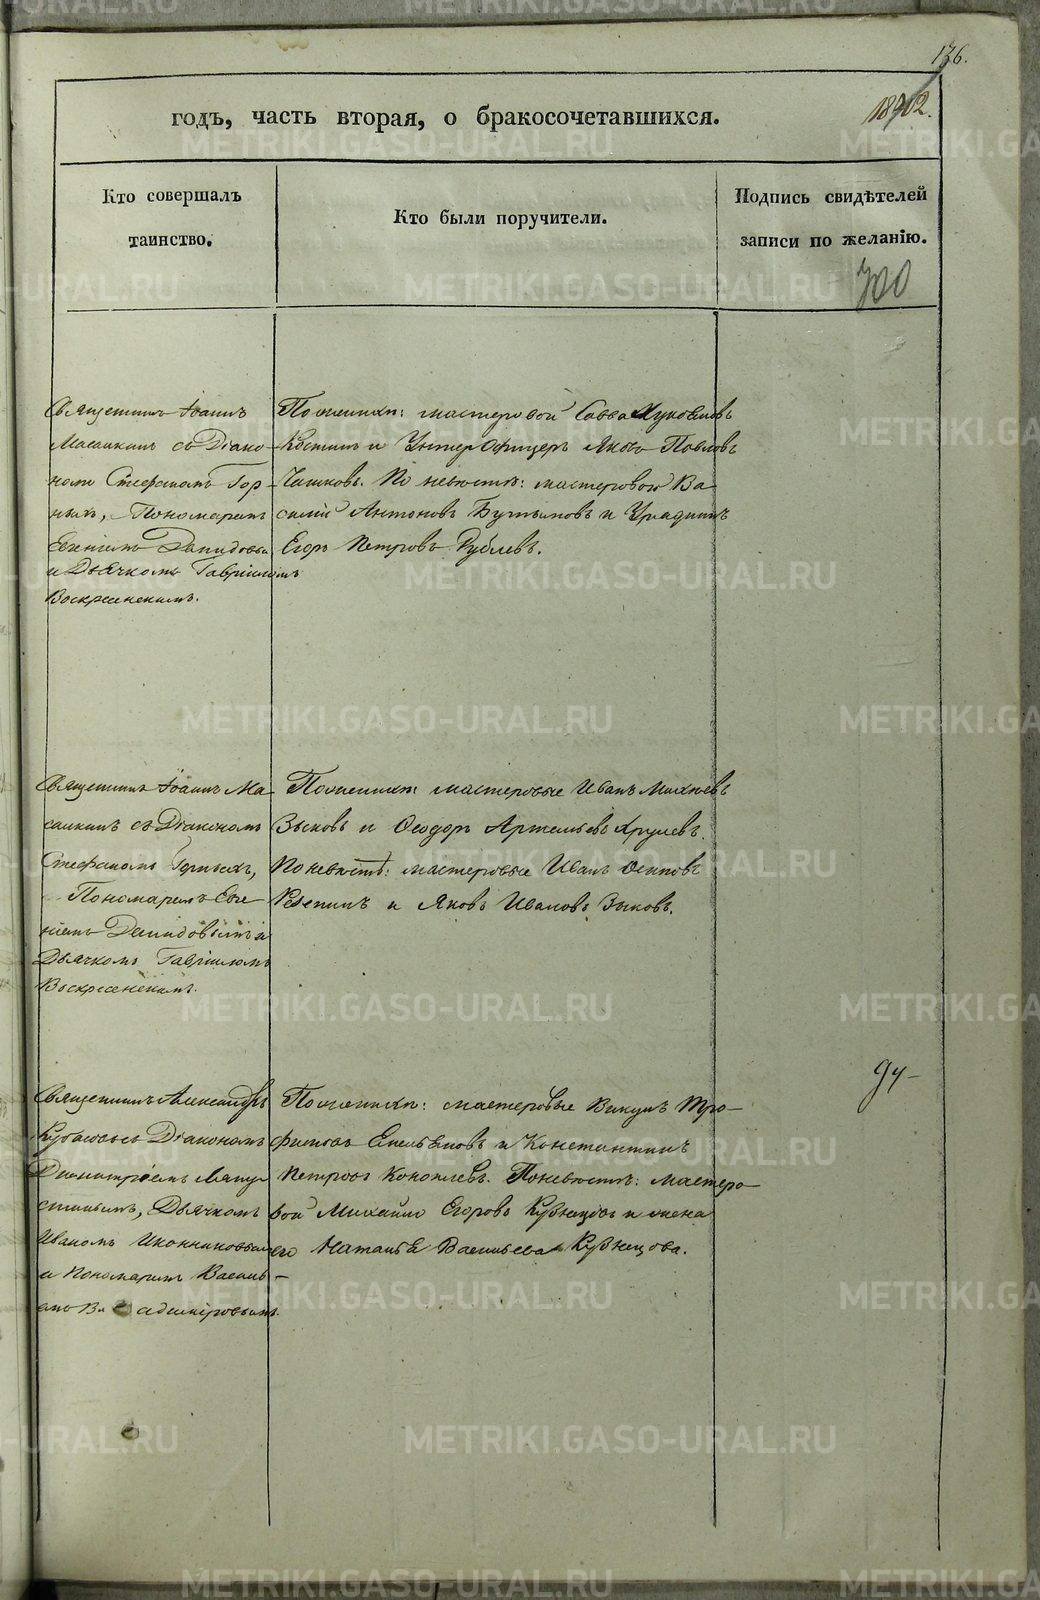 136.
годъ, часть вторая, о бракосочетавшихся.
Кто совершалъ
таинство.
Кто были поручители.
Подпись свидѣтелей
записи по желанію.
Священникъ Іоаннъ
съ Діако-
номъ Стефаномъ Гор-
ныхъ, Пономаремъ
Евгеніемъ
и Дьячкомъ Гавріиломъ
Воскресенскимъ.
По женихѣ: мастеровой Савва
Костинъ и Унтеръ Офицеръ Яковъ Павловъ
По невѣстѣ: мастеровой Ва-
силій Антоновъ и Урядникъ
Егоръ Петровъ Рублевъ.
Священникъ Іоаннъ
съ Діакономъ
Стефаномъ Горныхъ,
Пономаремъ Евге-
ніемъ Давидовымъ и
Дьячкомъ Гавріиломъ
Воскресенскимъ.
По женихѣ: мастеровые Иванъ
Зыковъ и Ѳеодоръ Артемьевъ Хрулевъ.
По невѣстѣ: мастеровые Иванъ Осиповъ
Репинъ и Яковъ Ивановъ Зыковъ.
Священникъ Александръ
съ Діакономъ
Димитріемъ
Дьячкомъ
Иваномъ Иконниковымъ
и Пономаремъ Василь-
емъ Владиміровымъ.
По женихѣ: мастеровые Викулъ Тро-
фимовъ Емельяновъ и Константинъ
Петровъ Коноплевъ. По невѣстѣ: мастеро-
вой Михайло Егоровъ Кузнецовъ и жена
его Наталья Васильева Кузнецова.
METRIKI.GASO-URAL.RU